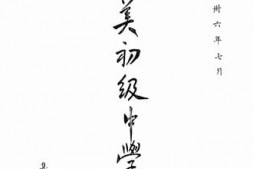 卅六年七月
美初级中學